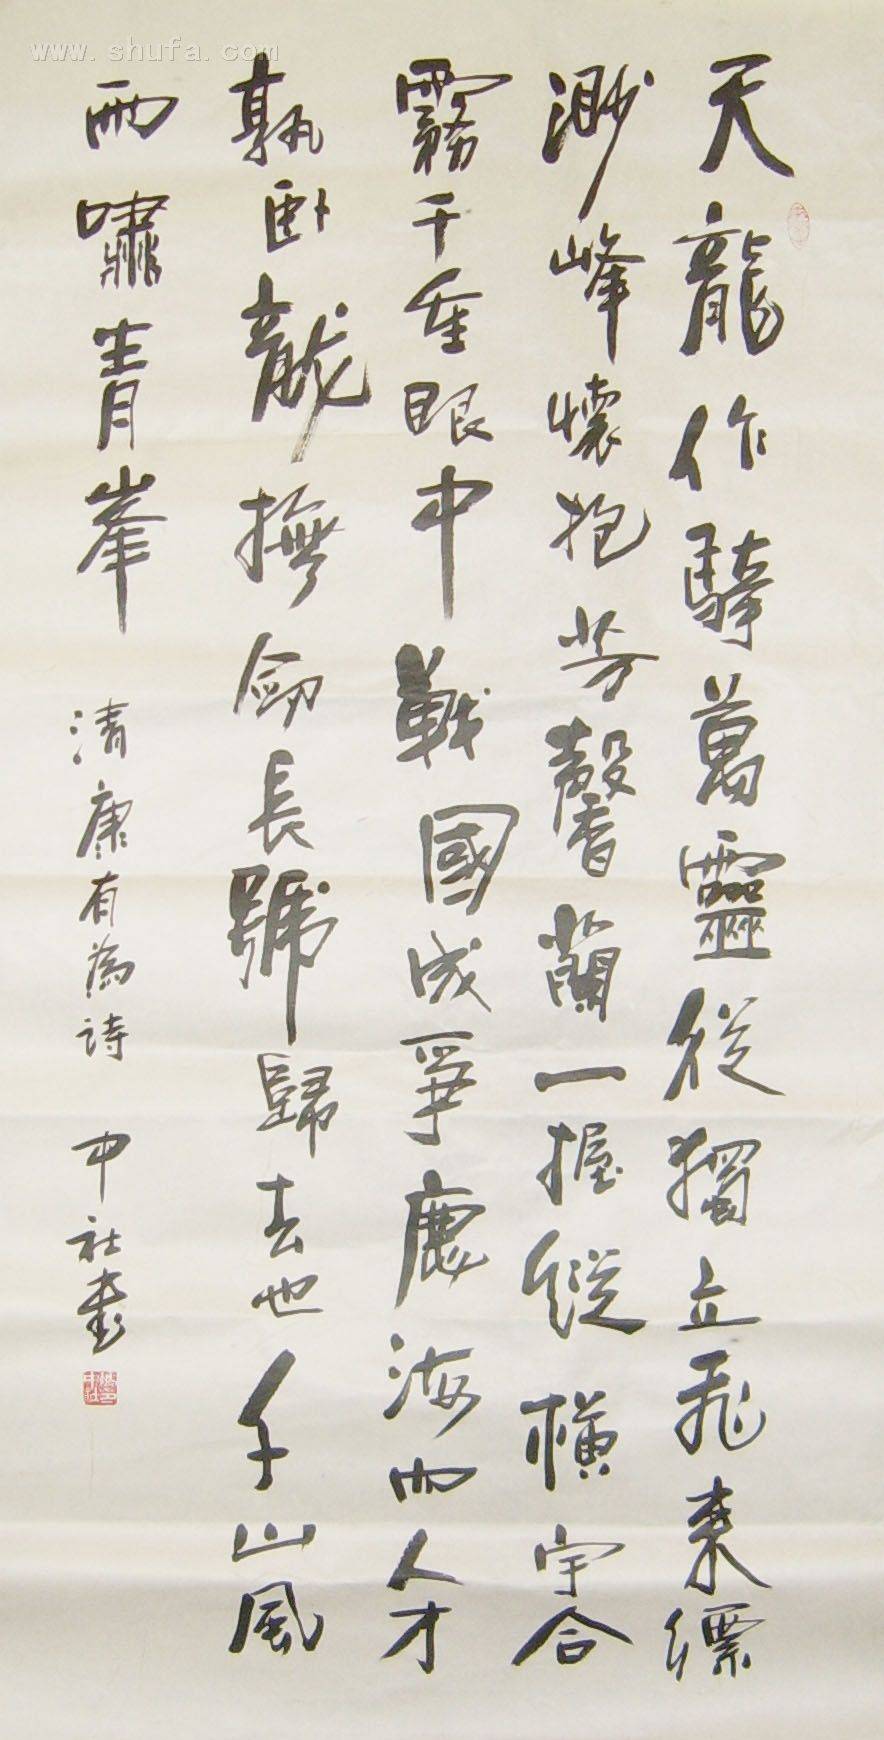 天龍作騎萬靈從獨立飛來縹
渺峰懷抱芳馨蘭一握縱橫宇合
霧千重眼中戰國成爭鹿海內人才
孰臥龍撫劍長號歸去也千山風
雨嘯青峯
清康有為詩 中社書
www.shufa.com